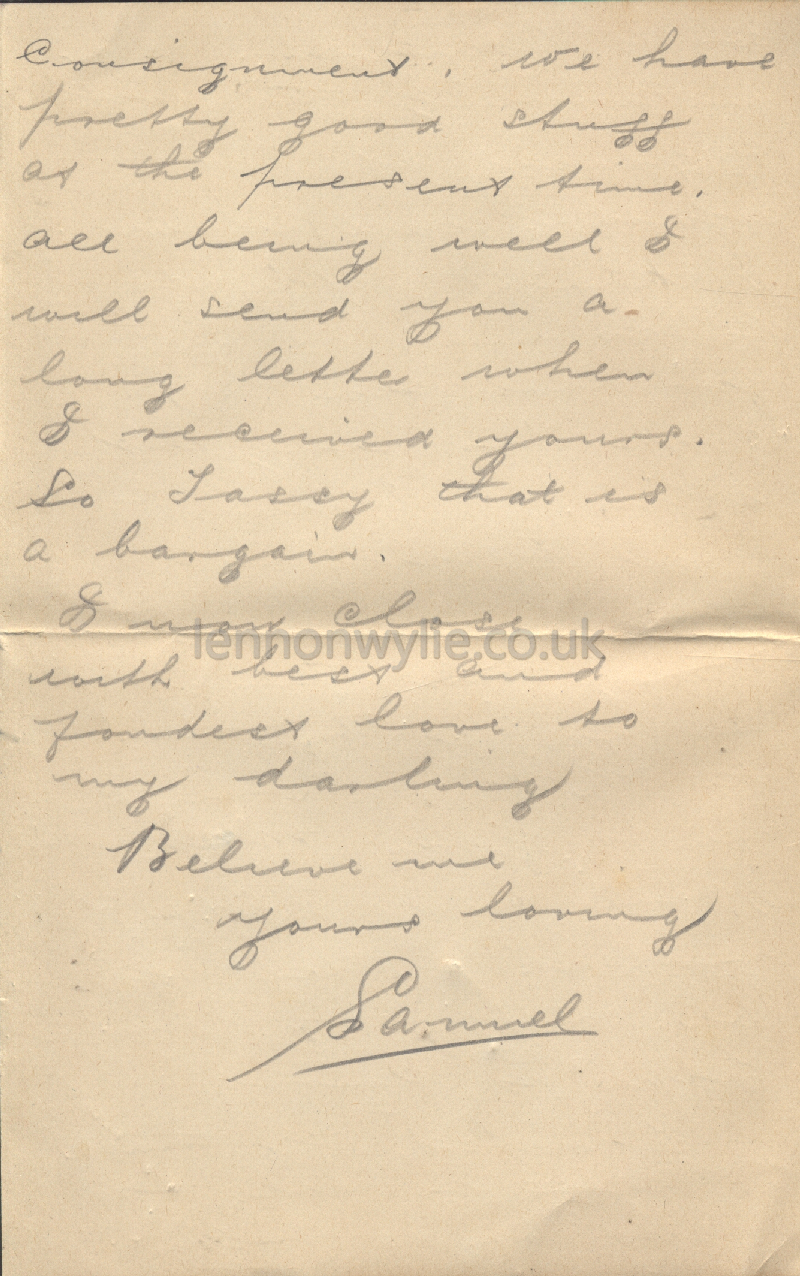 Consignment. We have
pretty good stuff
at the present time.
all being well I
will send you a
long letter when
I received yours.
So Tassy that is
a bargain.
I now close
with best and
fondest love to
my darling
Believe me
yours loving
Samuel
lennonwylie.co.uk